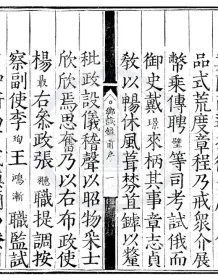 品式荒度章程乃戒衆介展
幣乘傳聘璧等司考試俄而
御史戴璟來柄其事章志貞
敎以暢休風葺棼苴罅以釐
秕政設儀稽聲以昭物采士
欣欣焉思奮乃以右布政使
楊最右叅政張職提調按
察副使李珣王鴻漸職監試